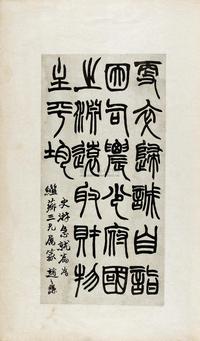 更卒歸誠自詣
因司農少府國
之淵遠取財物
主平均
史游急就篇為
三兄属篆 趙之謙